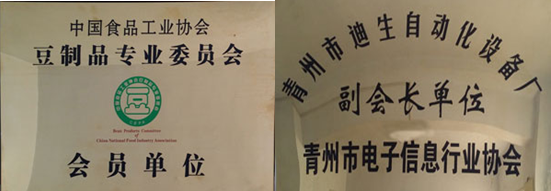 中国食品工业协会
豆制品专业委员会
Bean Products Committee
of
China National Food Industry Association
会员单位
青州市迪生自动化设备厂
副会长单位
青州市电子信息行业协会